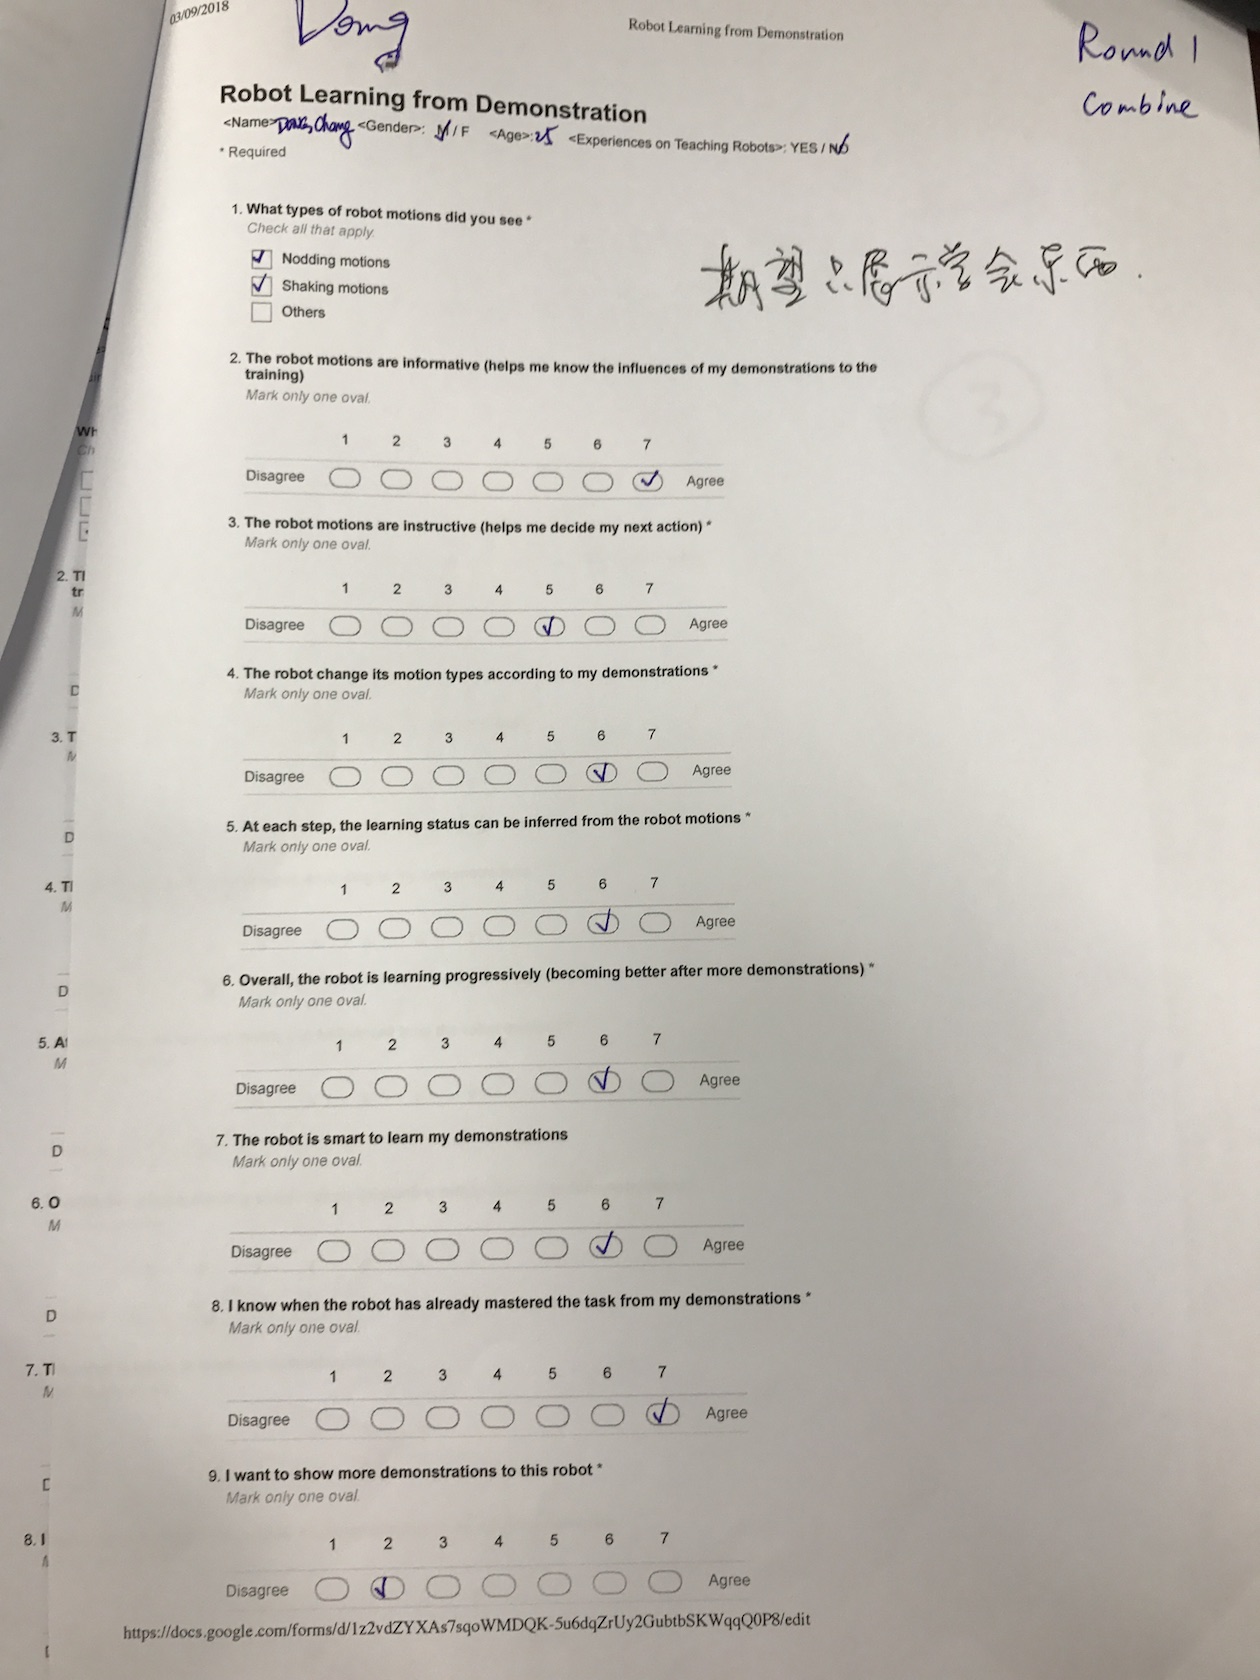 03/09/2018
Robot Learning from Demonstration
Dong
Round 1
Combine
Robot Learning from Demonstration
<Name> Dong Chang <Gender>: M / F <Age>: 25 <Experiences on Teaching Robots>: YES / NO
* Required
1. What types of robot motions did you see *
Check all that apply.
Nodding motions
Shaking motions
Others
期望只展示学会东西.
2. The robot motions are informative (helps me know the influences of my demonstrations to the
training)
Mark only one oval.
1 2 3 4 5 6 7
Disagree Agree
3. The robot motions are instructive (helps me decide my next action) *
Mark only one oval.
1 2 3 4 5 6 7
Disagree Agree
4. The robot change its motion types according to my demonstrations *
Mark only one oval.
1 2 3 4 5 6 7
Disagree Agree
5. At each step, the learning status can be inferred from the robot motions *
Mark only one oval.
1 2 3 4 5 6 7
Disagree Agree
6. Overall, the robot is learning progressively (becoming better after more demonstrations) *
Mark only one oval.
1 2 3 4 5 6 7
Disagree Agree
7. The robot is smart to learn my demonstrations
Mark only one oval.
1 2 3 4 5 6 7
Disagree Agree
8. I know when the robot has already mastered the task from my demonstrations *
Mark only one oval.
1 2 3 4 5 6 7
Disagree Agree
9. I want to show more demonstrations to this robot *
Mark only one oval.
1 2 3 4 5 6 7
Disagree Agree
https://docs.google.com/forms/d/1z2vdZYXAs7sqoWMDQK-5u6dqZrUy2GubtbSKWqqQ0P8/edit